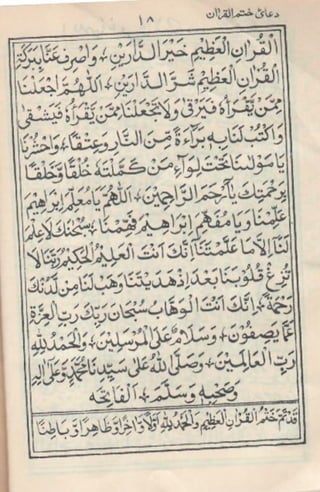 دعائ ختم القران
١٨
الْقُرْاٰنِ الْعَظِيْمِ خَيْرَ الدَّارَيْنِ + وَاصْرِفْ عَنَّا بِبَرَكَةِ
الْقُرْاٰنِ الْعَظِيْمِ شَرَّ الدَّارَيْنِ + اَللّٰهُمَّ اجْعَلْنَا
مِمَّنْ يَقْرَأُهُ فَيَرْقٰى وَلَا تَجْعَلْنَا مِمَّنْ يَقْرَأُهُ فَيَشْقٰى
وَاكْتُبْ لَنَا بِهِ بَرَاءَةً مِّنَ النَّارِ وَعِتْقًا + وَاحْشُرْنَا
يَا مَوْلٰىنَا تَحْتَ لِوَاءِ مَنْ كَمَّلْتَهُ خُلُقًا وَّخَلْقًا
بِرَحْمَتِكَ يَا اَرْحَمَ الرَّاحِمِيْنَ + اَللّٰهُمَّ يَا مُعَلِّمَ اِبْرَاهِيْمَ
عَلِّمْنَا وَيَا مُفَهِّمَ اِبْرَاهِيْمَ فَهِّمْنَا + سُبْحٰنَكَ لَا عِلْمَ
لَنَا اِلَّا مَا عَلَّمْتَنَا اِنَّكَ اَنْتَ الْعَلِيْمُ الْحَكِيْمُ رَبَّنَا لَا
تُزِغْ قُلُوْبَنَا بَعْدَ اِذْ هَدَيْتَنَا وَهَبْ لَنَا مِنْ لَّدُنْكَ
رَحْمَةً + اِنَّكَ اَنْتَ الْوَهَّابُ سُبْحَانَ رَبِّكَ رَبِّ الْعِزَّةِ
عَمَّا يَصِفُوْنَ + وَسَلَامٌ عَلَى الْمُرْسَلِيْنَ + وَالْحَمْدُ لِلّٰهِ
رَبِّ الْعَالَمِيْنَ + وَصَلَّى اللهُ عَلٰى سَيِّدِنَا مُحَمَّدٍ وَّعَلٰى اٰلِهِ
وَصَحْبِهِ وَسَلَّمَ + اَلْفَاتِحَه
قَدْ تَمَّ خَتْمُ الْقُرْاٰنِ الْعَظِيْمِ وَالْحَمْدُ لِلّٰهِ اَوَّلًا وَّاٰخِرًا وَّظَاهِرًا وَّبَاطِنًا